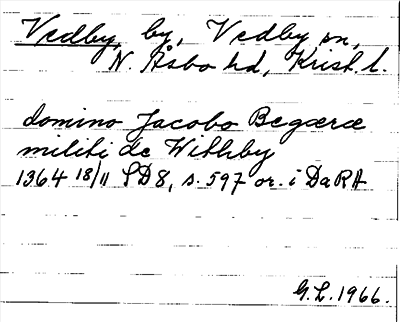 Vedby, by, Vedby sn,
N. Åsbo hd, Krist. l.
domino Jacobo Begære
militi de Withby
1364 18/11 SD8, s. 597 or. i DaRA
G.L. 1966.